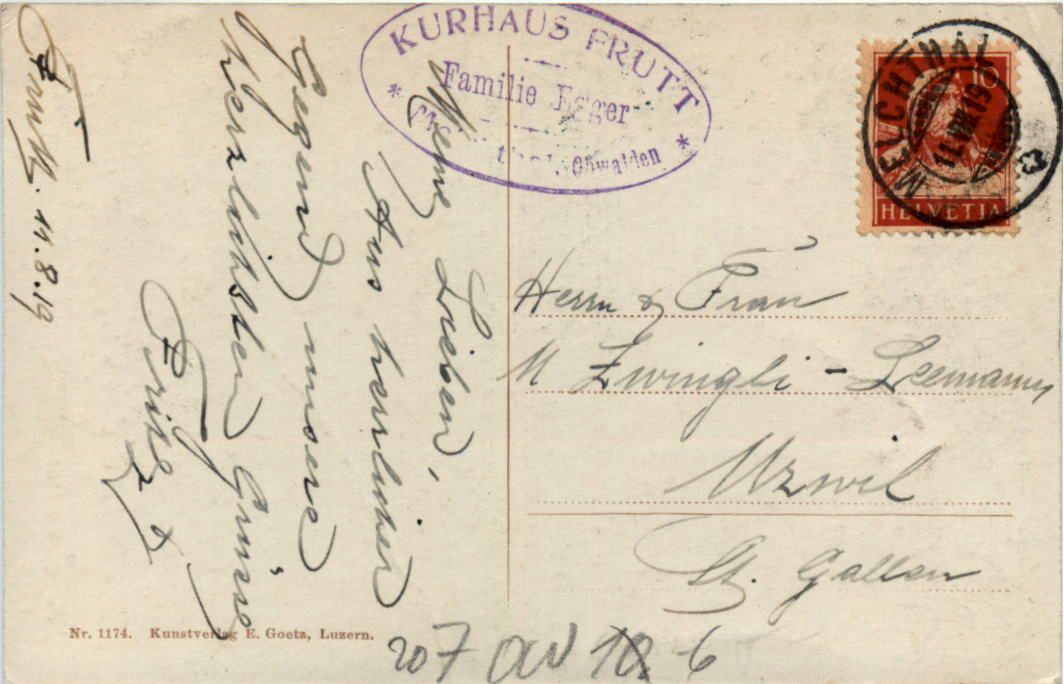 KURHAUS FRUTT
Familie Egger
Obwalden
MELCHTHAL
10
HELVETIA
Frutt. 11.8.19
Meine Lieben,
Aus herrlicher
Gegend unsere
herzlichsten Grüsse
Fritz &
Herrn & Frau
M Zwingli - Leemann
Uzwil
St. Gallen
Nr. 1174. Kunstverlag E. Goetz, Luzern.
207 6